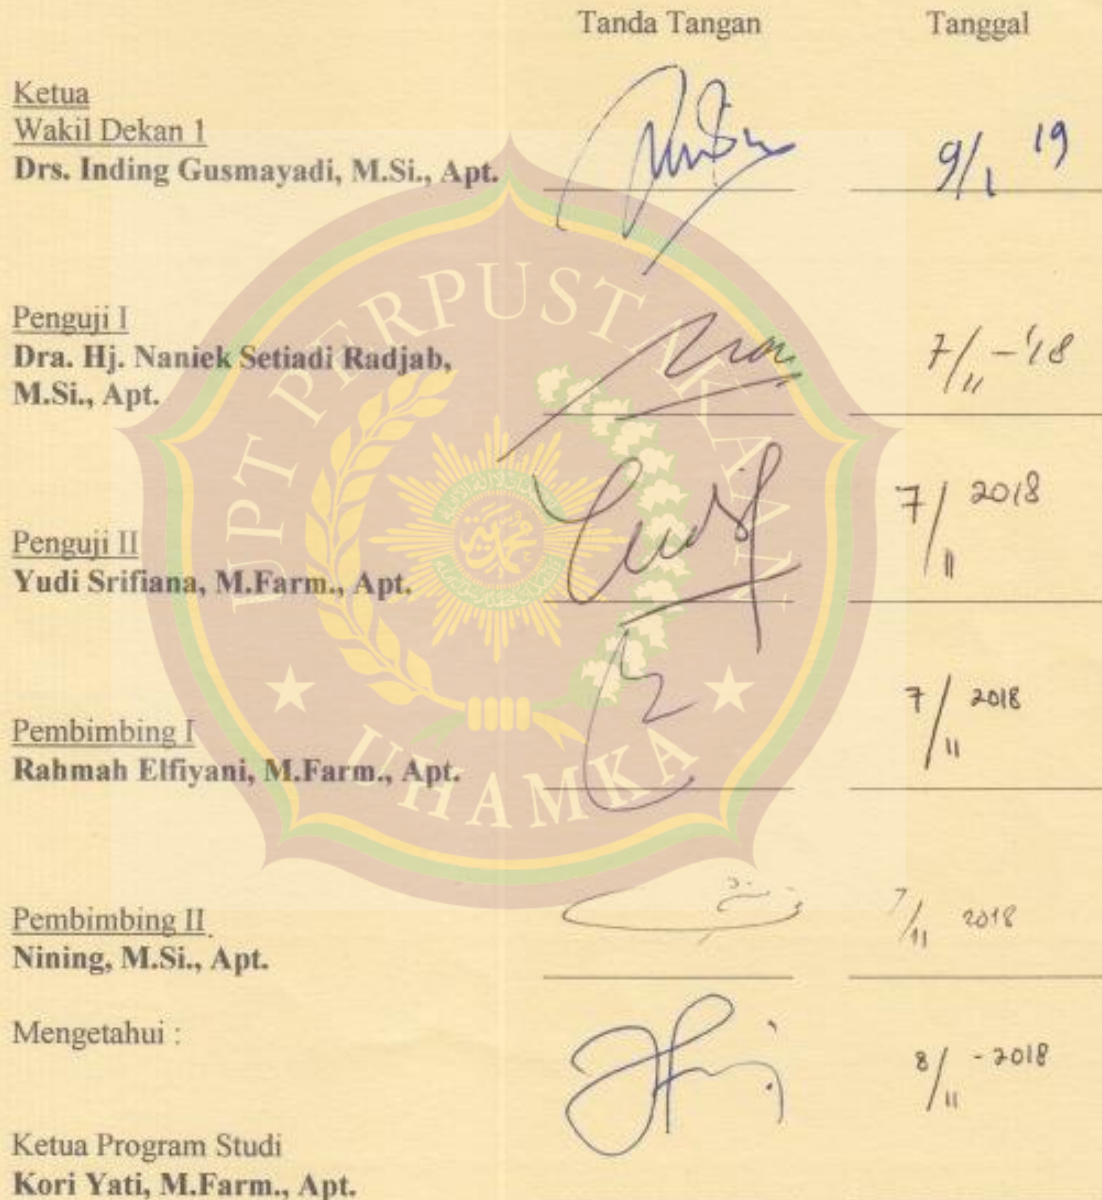 Tanda Tangan Tanggal
Ketua
Wakil Dekan 1
Drs. Inding Gusmayadi, M.Si., Apt. 9/1 19
Penguji I
Dra. Hj. Naniek Setiadi Radjab,
M.Si., Apt. 7/11 - '18
Penguji II 7/11 2018
Yudi Srifiana, M.Farm., Apt.
Pembimbing I 7/11 2018
Rahmah Elfiyani, M.Farm., Apt.
Pembimbing II 7/11 2018
Nining, M.Si., Apt.
Mengetahui : 8/11 - 2018
Ketua Program Studi
Kori Yati, M.Farm., Apt.
UPT PERPUSTAKAAN
UHAMKA